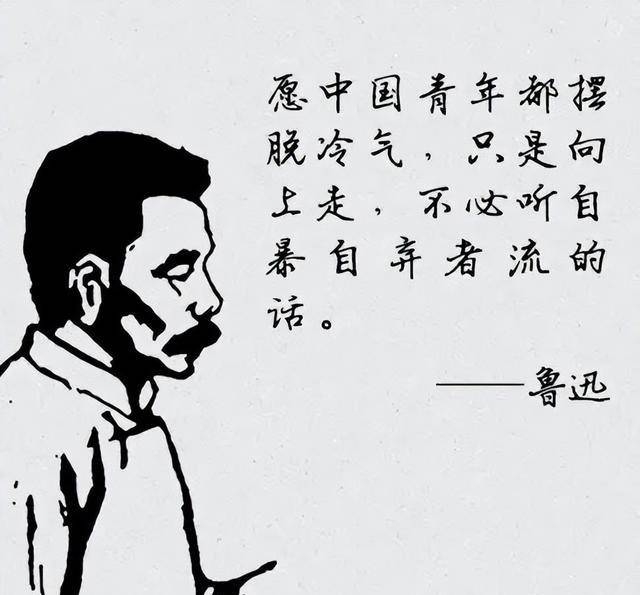 愿中国青年都摆
脱冷气，只是向
上走，不必听自
暴自弃者流的
话。
——鲁迅